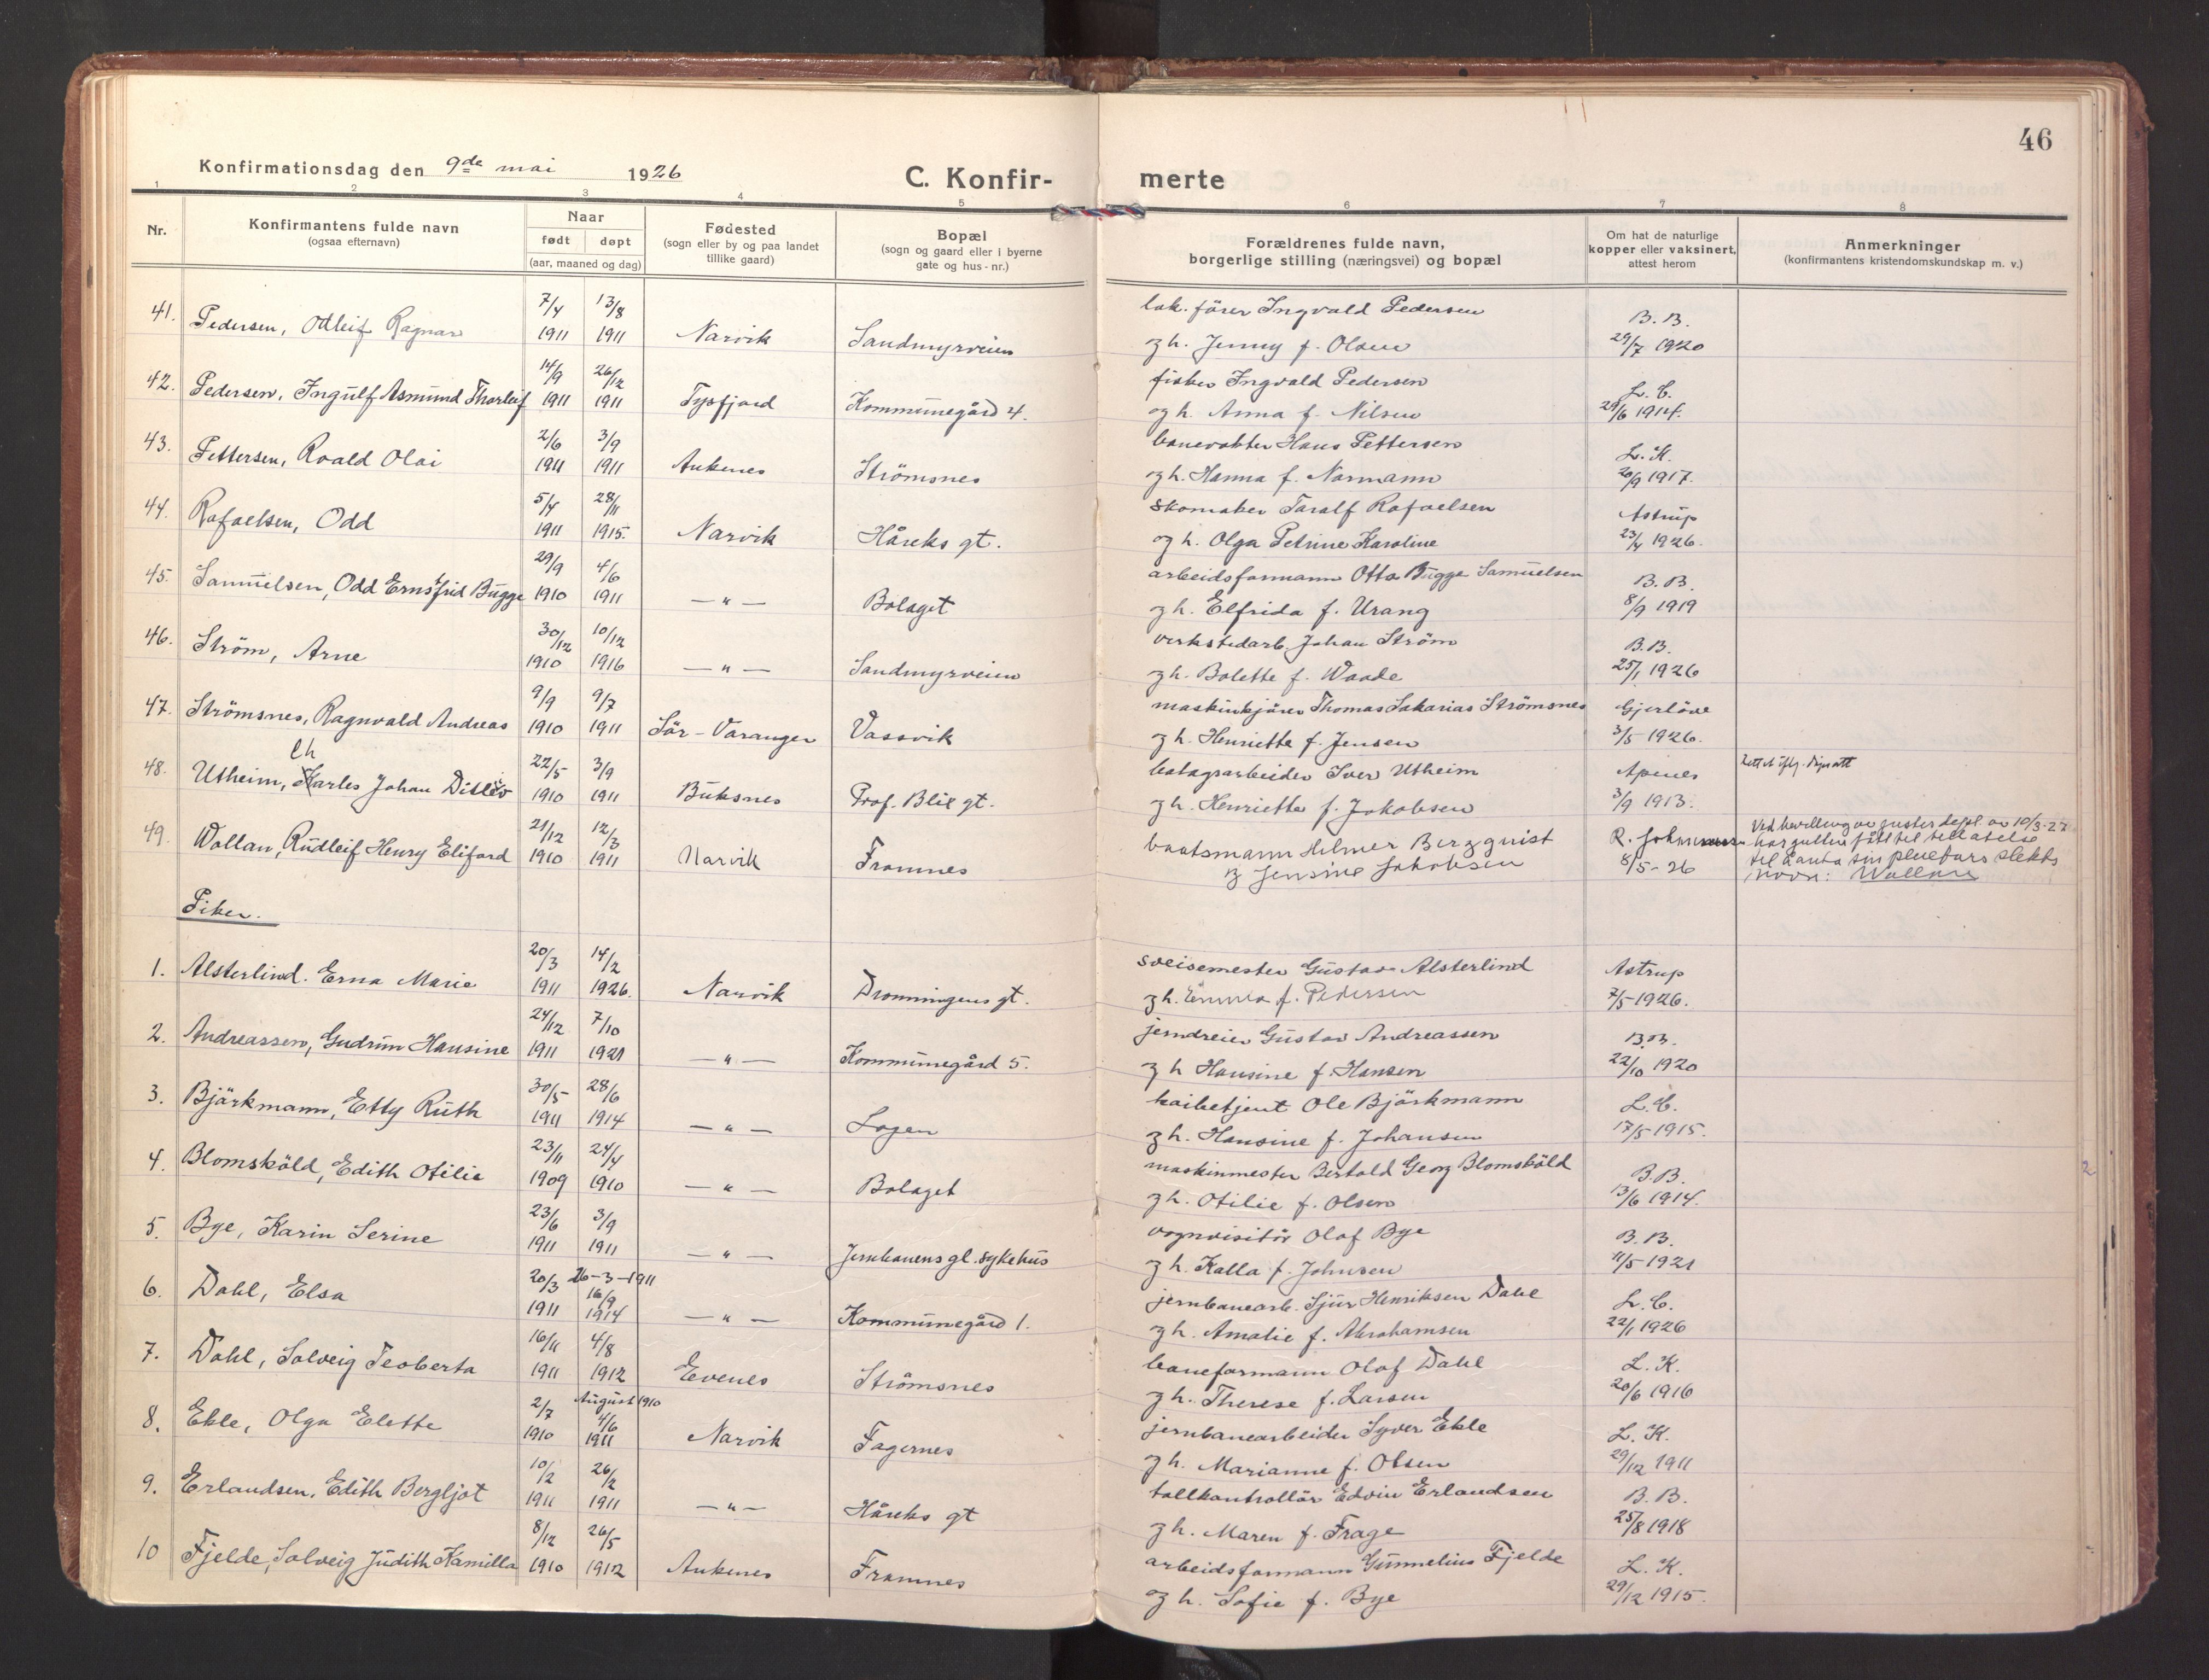 46
Konfirmationsdag den 9de mai 1926
C. Konfir-
merte
1 2 3 4 5 6 7 8
Nr.
Konfirmantens fulde navn
(ogsaa efternavn)
Naar
født døpt
(aar, maaned og dag)
Fødested
(sogn eller by og paa landet
tillike gaard)
Bopæl
(sogn og gaard eller i byerne
gate og hus-nr.)
Forældrenes fulde navn,
borgerlige stilling (næringsvei) og bopæl
Om hat de naturlige
kopper eller vaksinert,
attest herom
Anmerkninger
(konfirmantens kristendomskundskap m. v.)
41. 7/4 13/8 lok. förer Ingvald Pedersen B. B.
Pedersen, Odleif Ragnar 1911 1911 Narvik Sandmyrveien og h. Jenny f. Olsen 29/7 1920
42. 14/9 26/12 fisker Ingvald Pedersen L. C.
Pedersen, Ingulf Asmund Thorleif 1911 1911 Tysfjord Kommunegård 4. og h. Anna f. Nilsen 29/6 1914.
43. 2/6 3/9 banevokter Hans Pettersen L. K.
Pettersen, Roald Olai 1911 1911 Ankenes Strömsnes og h. Hanna f. Normann 20/9 1917.
44. 5/4 28/11 skomaker Taralf Rafaelsen Astrup
Rafaelsen, Odd 1911 1915. Narvik Håreks gt. og h. Olga Petrine Karoline 23/4 1926.
45. 29/9 4/6 arbeidsformann Otto Bugge Samuelsen B. B.
Samuelsen, Odd Ernstfrid Bugge 1910 1911 — " — Bolaget og h. Elfrida f. Urang 8/9 1919
46. 30/12 10/12 verkstedarb. Johan Ström B. B.
Ström, Arne 1910 1916 — " — Sandmyrveien og h. Bolette f. Waade 25/1 1926
47. 9/9 9/7 maskinkjörer Thomas Sakarias Strömsnes Gjerlöve
Strömsnes, Ragnvald Andreas 1910 1911 Sör-Varanger Vassvik og h. Henriette f. Jensen 3/5 - 1926.
Ch
48. 22/5 3/9 bolagsarbeider Iver Utheim
Utheim, Karles Johan Ditlev 1910 1911 Buksnes Prof. Blix gt. og h. Henriette f. Jakobsen 3/9 1913.
49. 21/12 12/3 baatsmann Hilmer Bergquist R. Johnsen Ved bevilling av justisdept. av 10/3-27
Wollan, Rudleif Henry Eliford 1910 1911 Narvik Framnes og Jensine Jakobsen 8/5 - 26 har gutten fått til tillatelse
til å anta sin pleiefars slekts
navn: Wollan
Piker.
1. 20/3 14/2 sveisemester Gustav Alsterlind Astrup
Alsterlind. Erna Marie 1911 1926. Narvik Dronningens gt. og h. Emma f. Pedersen 7/5-1926.
2. 24/12 7/10 jerndreier Gustav Andreassen B. B.
Andreassen, Gudrun Hansine 1911 1921 — " — Kommunegård 5. og h Hansine f. Hansen 22/10 1920
3. 30/5 28/6 kaibetjent Ole Björkmann L. C.
Björkmann, Etty Ruth 1911 1914 — " — Logen og h. Hansine f. Johansen 17/5 - 1915.
4. 23/11 24/4 maskinmester Bertold Georg Blomsköld B. B.
Blomsköld, Edith Otilie 1909 1910 — " — Bolaget og h. Otilie f. Olsen 13/6 1914.
5. 23/6 3/9 vognvisitör Olaf Bye B. B.
Bye, Karin Serine 1911 1911 — " — Jernbanens gl. sykehus og h. Kalla f. Johnsen 11/5 - 1921
6. 20/3 26-3-1911 16/9 jernbanearb. Sjur Henriksen Dahl L. C.
Dahl, Elsa 1911 1914 — " — Kommunegård 1. og h. Amalie f. Abrahamsen 22/1 1926
7. 16/11 4/8 baneformann Olaf Dahl L. K.
Dahl, Solveig Teoberta 1911 1912 Evenes Strömsnes og h. Therese f. Larsen 20/6 1916
8. 2/7 August 1910 4/6 jernbanearbeider Syver Ekle L. K.
Ekle, Olga Elette 1910 1911 Narvik Fagernes og h. Marianne f. Olsen 29/12 1911
9. 10/2 26/2 tollkontrollör Edvin Erlandsen B. B.
Erlandsen, Edith Bergljot 1911 1911 — " — Håreks gt og h. Maren f. Frage 25/8 1918
10 8/12 26/5 arbeidsformann Gunnelius Fjelde L. K.
Fjelde, Solveig Judith Kamilla 1910 1912 Ankenes Framnes og h. Sofie f. Bye 29/12 1915.